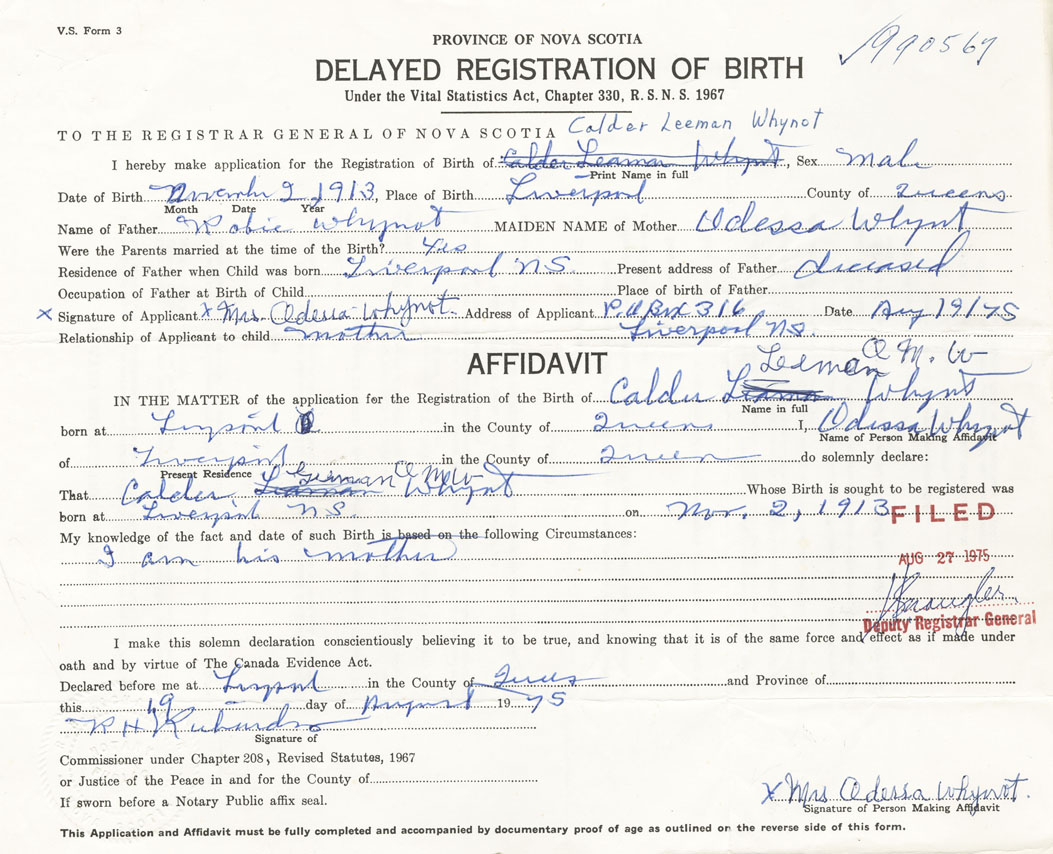 V.S. Form 3
PROVINCE OF NOVA SCOTIA
990567
DELAYED REGISTRATION OF BIRTH
Under the Vital Statistics Act, Chapter 330, R.S.N.S. 1967
TO THE REGISTRAR GENERAL OF NOVA SCOTIA Calder Leeman Whynot
I hereby make application for the Registration of Birth of Calder Leaman Whynot, Sex Male
Print Name in full
Date of Birth November 2, 1913, Place of Birth Liverpool County of Queens
Month Date Year
Name of Father Robie Whynot MAIDEN NAME of Mother Odessa Whynt
Were the Parents married at the time of the Birth? Yes
Residence of Father when Child was born Liverpool NS. Present address of Father deceased
Occupation of Father at Birth of Child Place of birth of Father
x Signature of Applicant x Mrs Odessa Whynot. Address of Applicant P.O Box 316 Date Aug 19/75
Relationship of Applicant to child mother Liverpool NS.
AFFIDAVIT
Leeman O M. W
IN THE MATTER of the application for the Registration of the Birth of Calder Leaman Whynt
Name in full
born at in the County of Queens I, Odessa Whynot
Name of Person Making Affidavit
of Liverpool in the County of Queen do solemnly declare:
Present Residence Leeman O M W
That Calder Leaman Whynt Whose Birth is sought to be registered was
born at Liverpool NS. on Nov. 2, 1913
FILED
My knowledge of the fact and date of such Birth is based on the following Circumstances:
I am his mother
AUG 27 1975
Deputy Registrar General
I make this solemn declaration conscientiously believing it to be true, and knowing that it is of the same force and effect as if made under
oath and by virtue of The Canada Evidence Act.
Declared before me at in the County of Queens and Province of
this 19 day of August 19 75
R H Richardson
Signature of
Commissioner under Chapter 208, Revised Statutes, 1967
or Justice of the Peace in and for the County of
If sworn before a Notary Public affix seal.
x Mrs Odessa Whynot.
Signature of Person Making Affidavit
This Application and Affidavit must be fully completed and accompanied by documentary proof of age as outlined on the reverse side of this form.